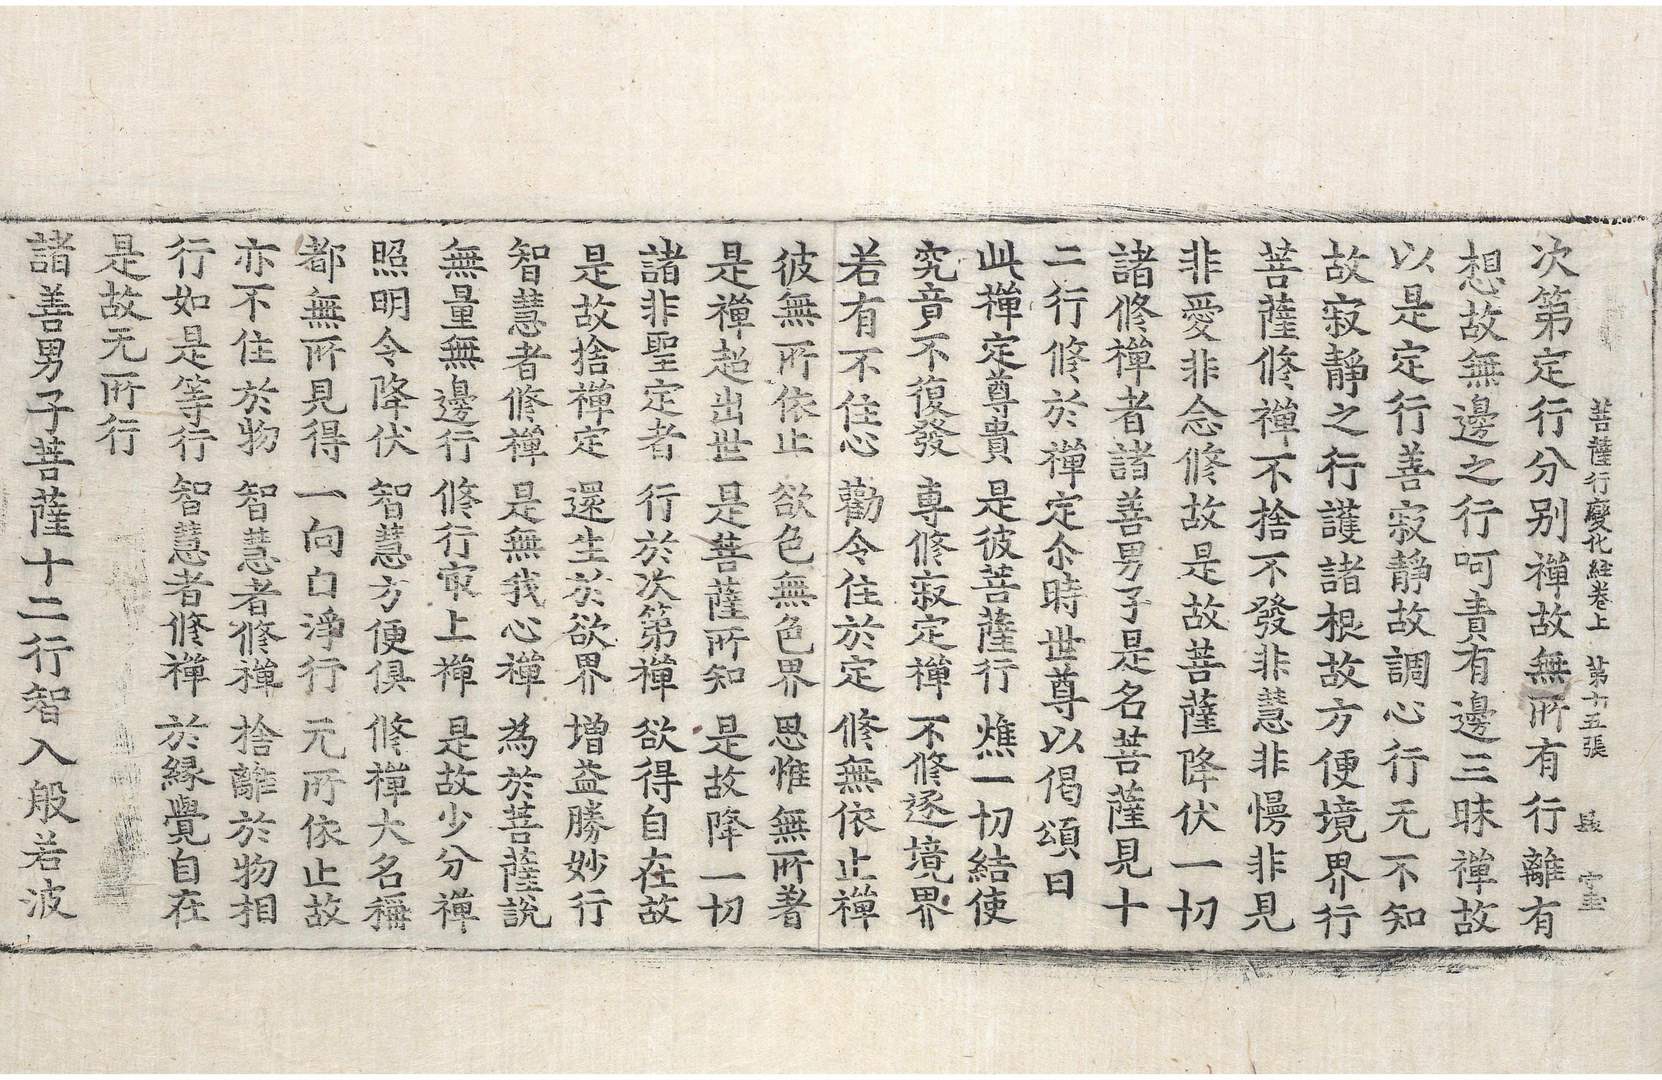 菩薩行變化經卷上 第十五張 㲉 字号
次第定行分別禪故無所有行離有
想故無邊之行呵責有邊三昧禪故
以是定行善寂靜故調心行无不知
故寂靜之行護諸根故方便境界行
菩薩修禪不捨不發非慧非慢非見
非愛非念修故是故菩薩降伏一切
諸修禪者諸善男子是名菩薩見十
二行修於禪定尒時世尊以偈頌曰
此禪定尊貴 是彼菩薩行 燋一切結使
究竟不復發 專修寂定禪 不修逐境界
若有不住心 勸令住於定 修無依止禪
彼無所依止 欲色無色界 思惟無所著
是禪超出世 是菩薩所知 是故降一切
諸非聖定者 行於次第禪 欲得自在故
是故捨禪定 還生於欲界 增益勝妙行
智慧者修禪 是無我心禪 為於菩薩說
無量無邊行 修行㝡上禪 是故少分禪
照明令降伏 智慧方便俱 修禪大名稱
都無所見得 一向白淨行 无所依止故
亦不住於物 智慧者修禪 捨離於物相
行如是等行 智慧者修禪 於緣覺自在
是故无所行
諸善男子菩薩十二行智入般若波